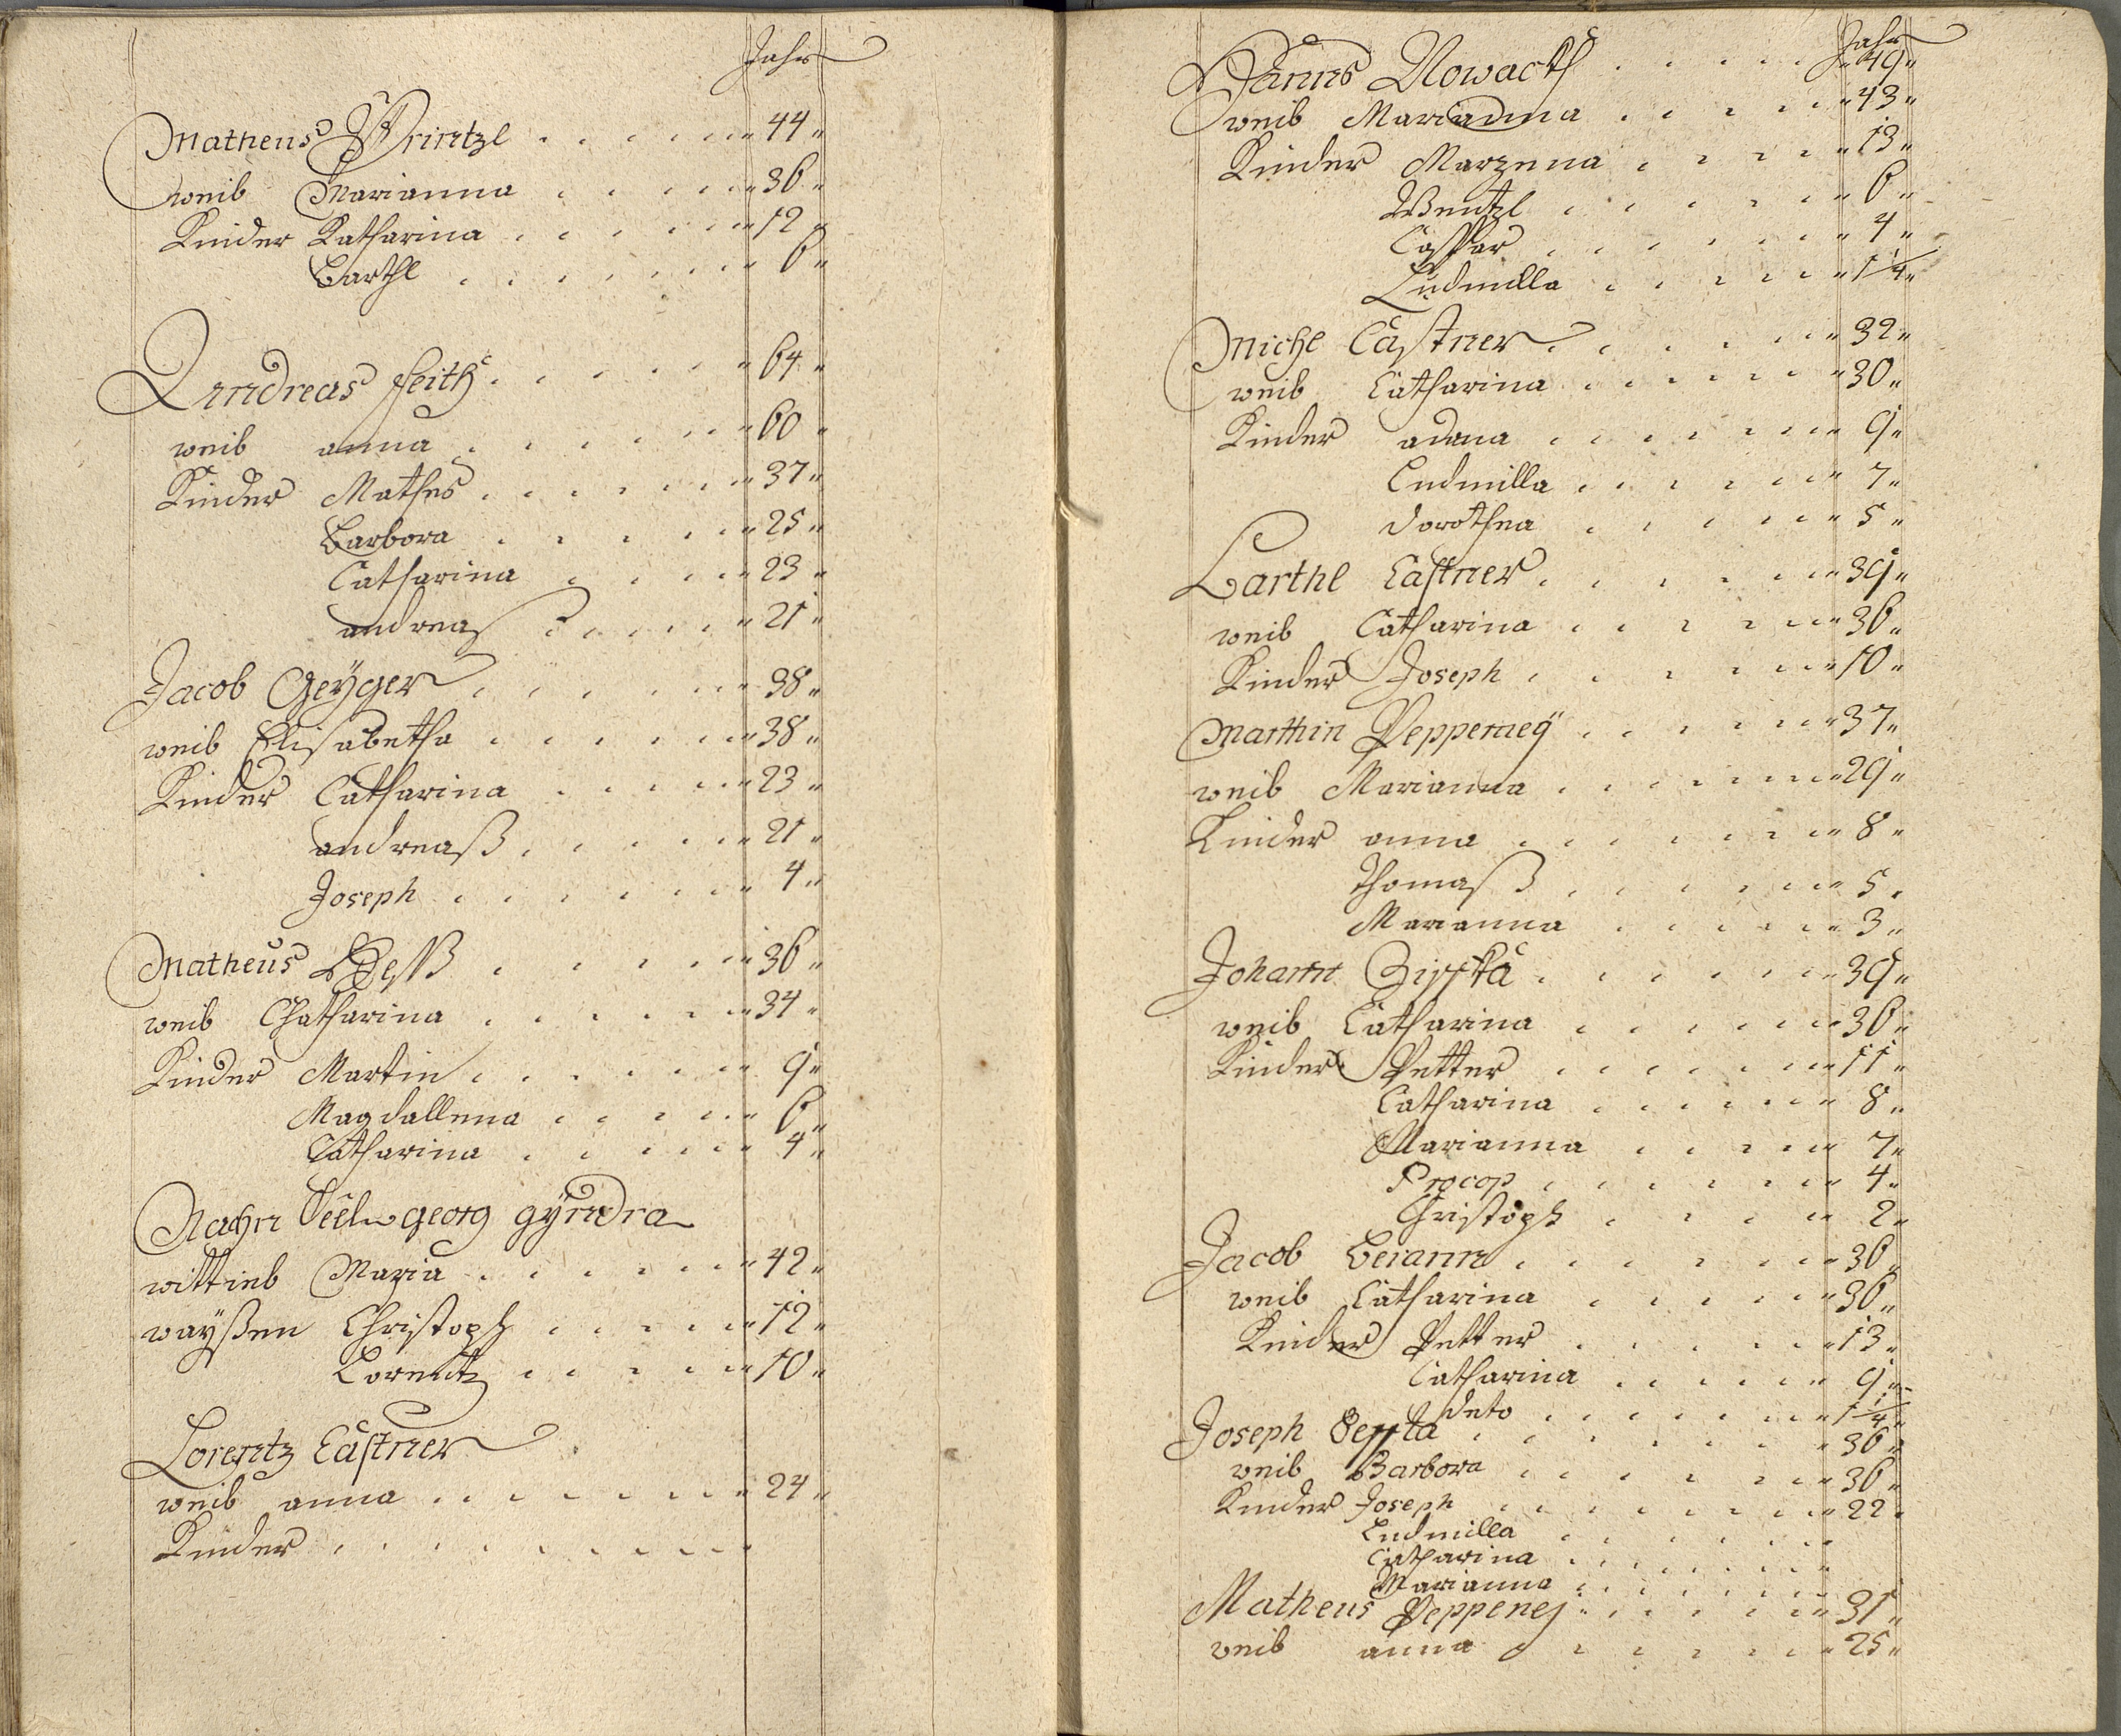 Jahr
Matheus Printzl 44
weib Marianna 36
Kinder Katharina 12
Barthl 6
Andreas Feith 64
weib anna 60
Kinder Mathes 37
Barbora 25
Catharina 23
andreas 21
Jacob Geÿger 38
weib Elisabetha 38
Kinder Catharina 23
andreaß 21
Joseph 4
Matheus Heß 36
weib Chatharina 34
Kinder Martin 9
Magdallena 6
Catharina 4
Nachn Seel. georg gÿndra
wittieb Maria 42
waÿßen Christoph 12
Lorentz 10
Lorentz Castner
weib anna 24
Kinder
Jahr
Hanns Nowack 49
weib Marianna 43
Kinder Marzena 13
Wentzl 6
Casspar 4
Ludmilla 1/4
Michl Castner 32
weib Catharina 30
Kinder adana 9
Ludmilla 7
dorothea 5
Barthl Castner 39
weib Catharina 36
Kinder Joseph 10
Marthin Pepperneÿ 37
weib Marianna 29
Kinder anna 8
Thomaß 5
Marianna 3
Johann Zisska 39
weib Catharina 36
Kinder Petter 11
Catharina 8
Marianna 7
Procop 4
Christoph 2
Jacob Beiann 36
weib Catharina 36
Kinder Petter 13
Catharina 9
deto 1/4
Joseph 36
weib Barbora 36
Kinder Joseph 22
Ludmilla
Catharina
Marianna
Matheus Peppenej 31
weib anna 25